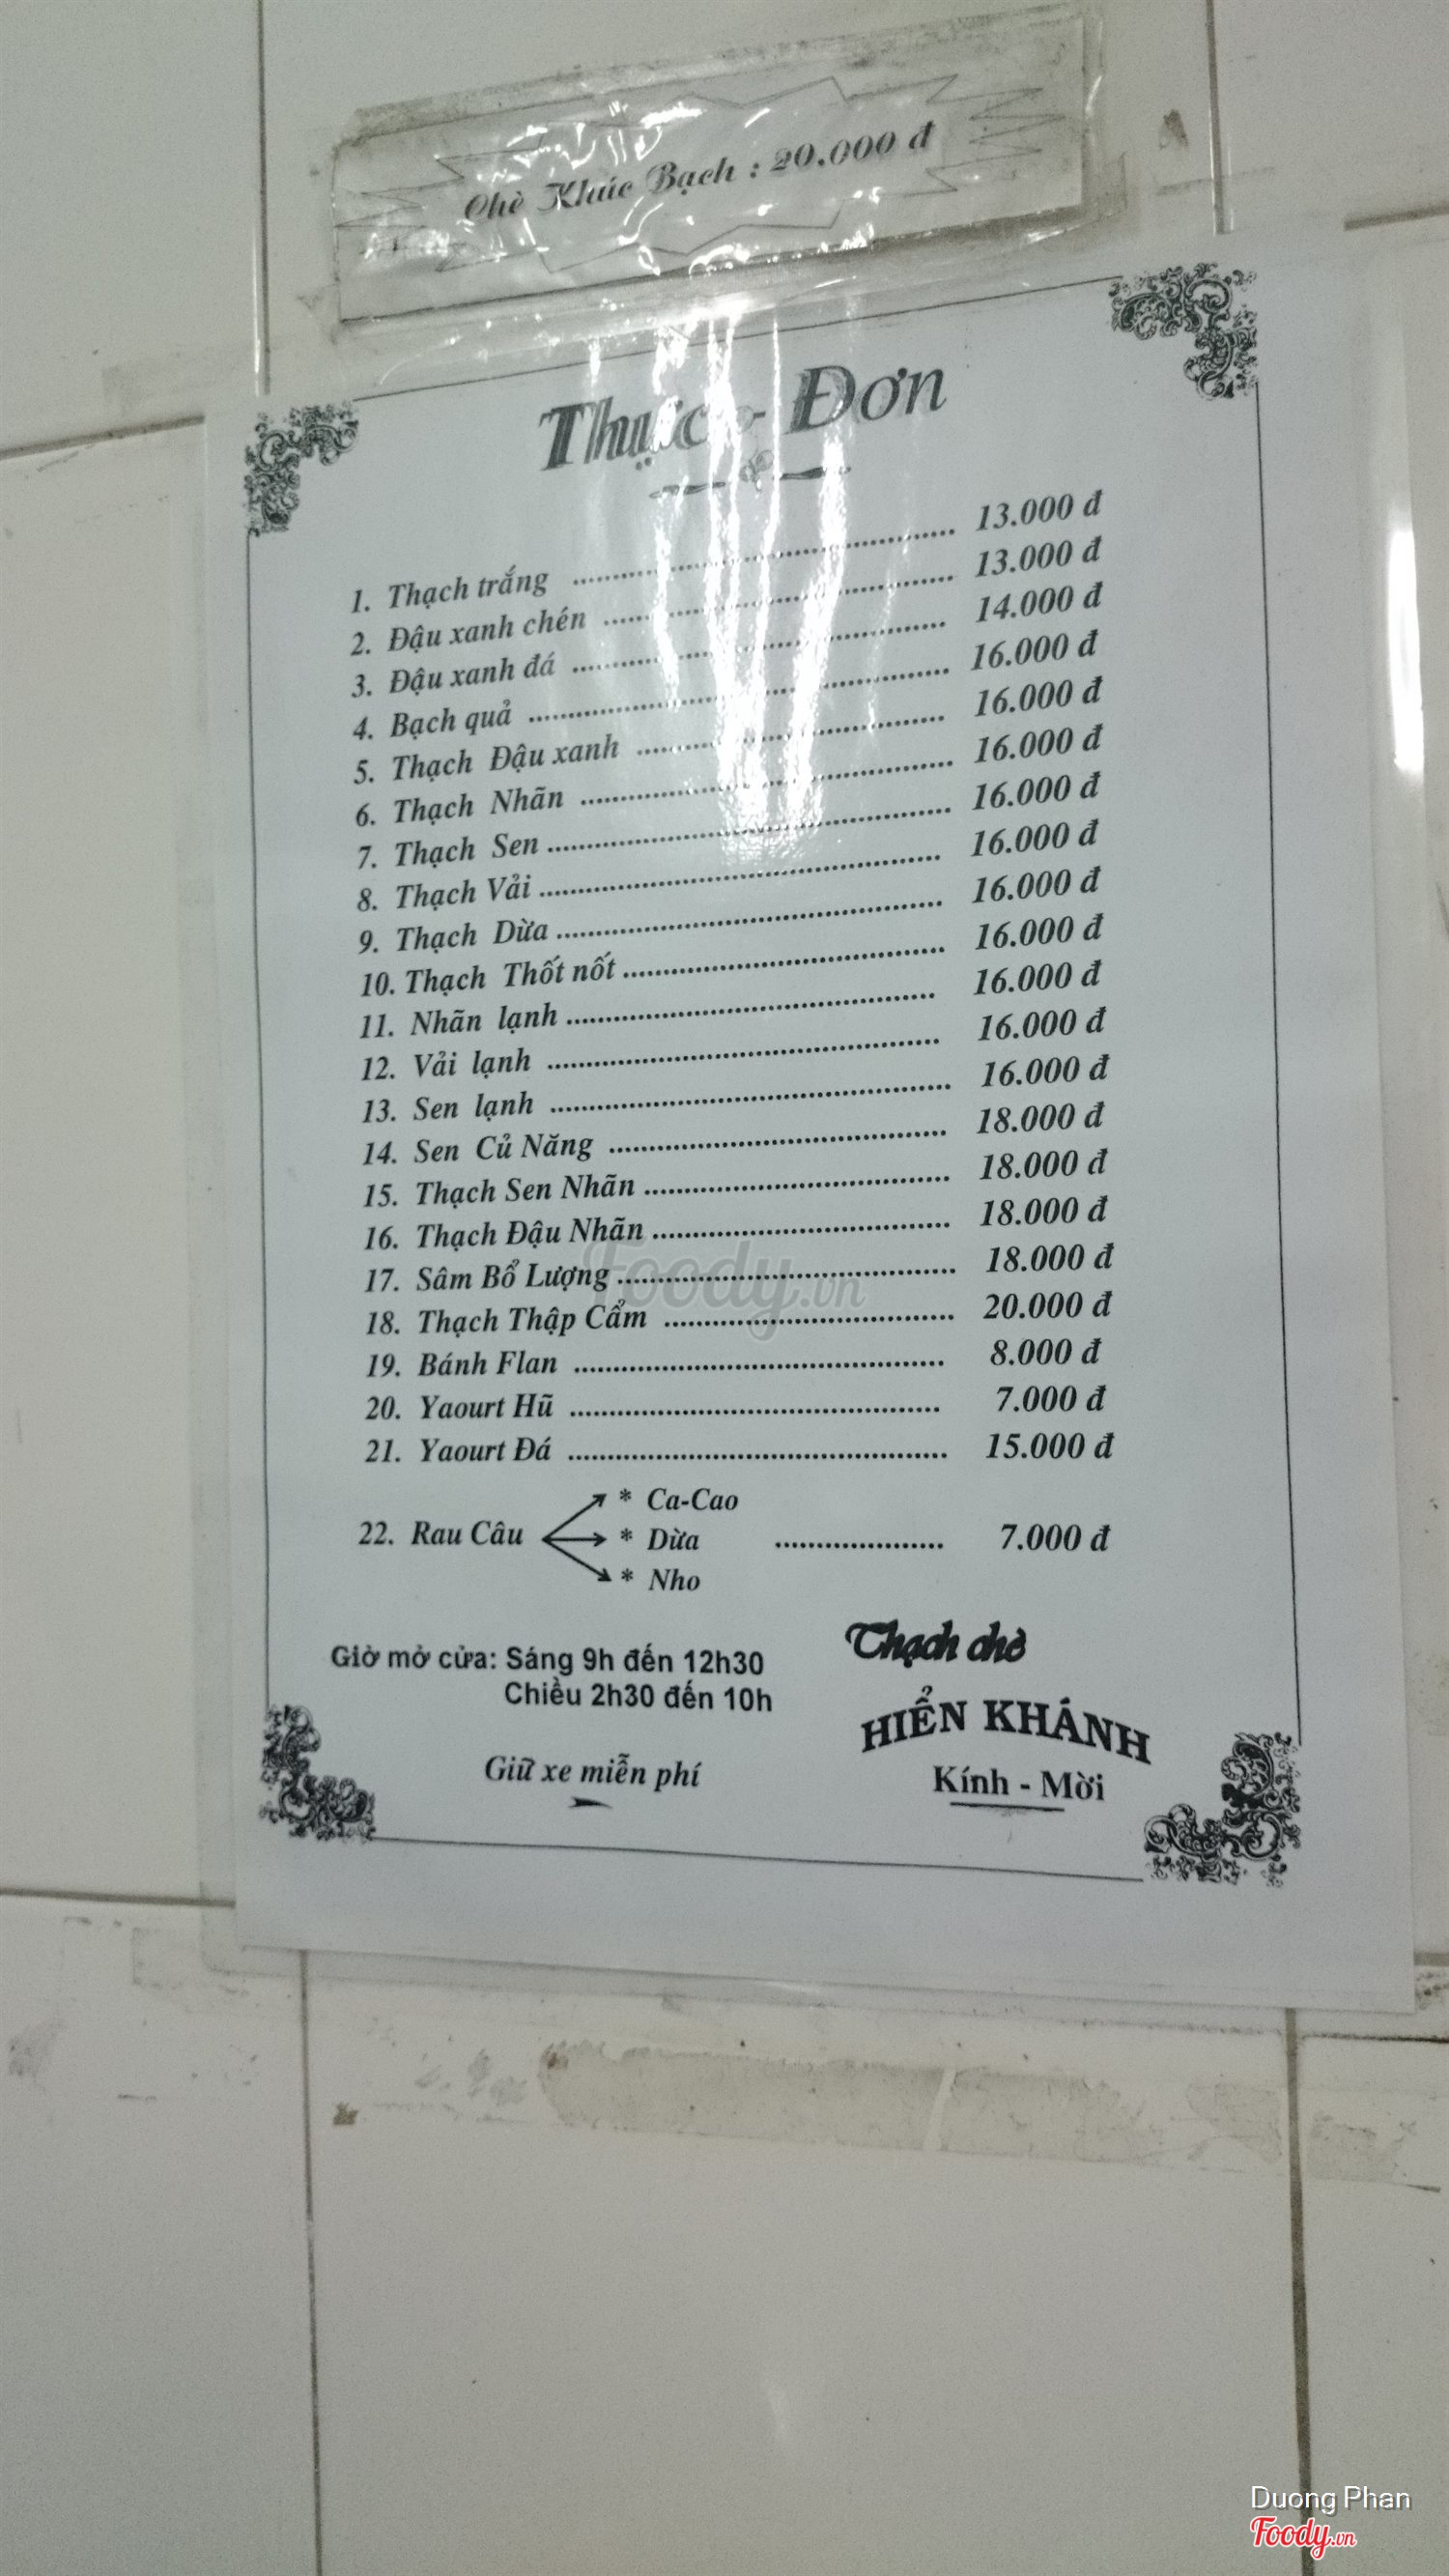 Chè Khúc Bạch : 20.000 đ
Thực - Đơn
1. Thạch trắng ........ 13.000 đ
2. Đậu xanh chén ........ 13.000 đ
3. Đậu xanh đá ........ 14.000 đ
4. Bạch quả ........ 16.000 đ
5. Thạch Đậu xanh ........ 16.000 đ
6. Thạch Nhãn ........ 16.000 đ
7. Thạch Sen ........ 16.000 đ
8. Thạch Vải ........ 16.000 đ
9. Thạch Dừa ........ 16.000 đ
10. Thạch Thốt nốt ........ 16.000 đ
11. Nhãn lạnh ........ 16.000 đ
12. Vải lạnh ........ 16.000 đ
13. Sen lạnh ........ 16.000 đ
14. Sen Củ Năng ........ 18.000 đ
15. Thạch Sen Nhãn ........ 18.000 đ
16. Thạch Đậu Nhãn ........ 18.000 đ
17. Sâm Bổ Lượng ........ 18.000 đ
18. Thạch Thập Cẩm ........ 20.000 đ
19. Bánh Flan ........ 8.000 đ
20. Yaourt Hũ ........ 7.000 đ
21. Yaourt Đá ........ 15.000 đ
* Ca-Cao
22. Rau Câu * Dừa ........ 7.000 đ
* Nho
Giờ mở cửa: Sáng 9h đến 12h30
Chiều 2h30 đến 10h
Giữ xe miễn phí
Thạch chè
HIỂN KHÁNH
Kính - Mời
Foody.vn
Duong Phan
Foody.vn